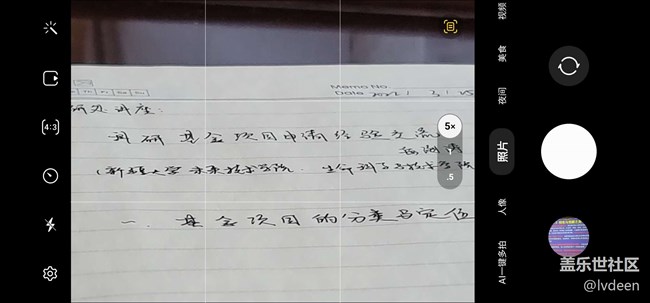 Memo No.
Date 2021 / 3 / 25
讲座:
科研基金项目申请经验交流
(新疆大学未来技术学院. 生命科学与技术学院
一. 基金项目的分类与定位
4:3
5×
1
.5
视频
美食
夜间
照片
人像
AI一键多拍
盖乐世社区
@lvdeen